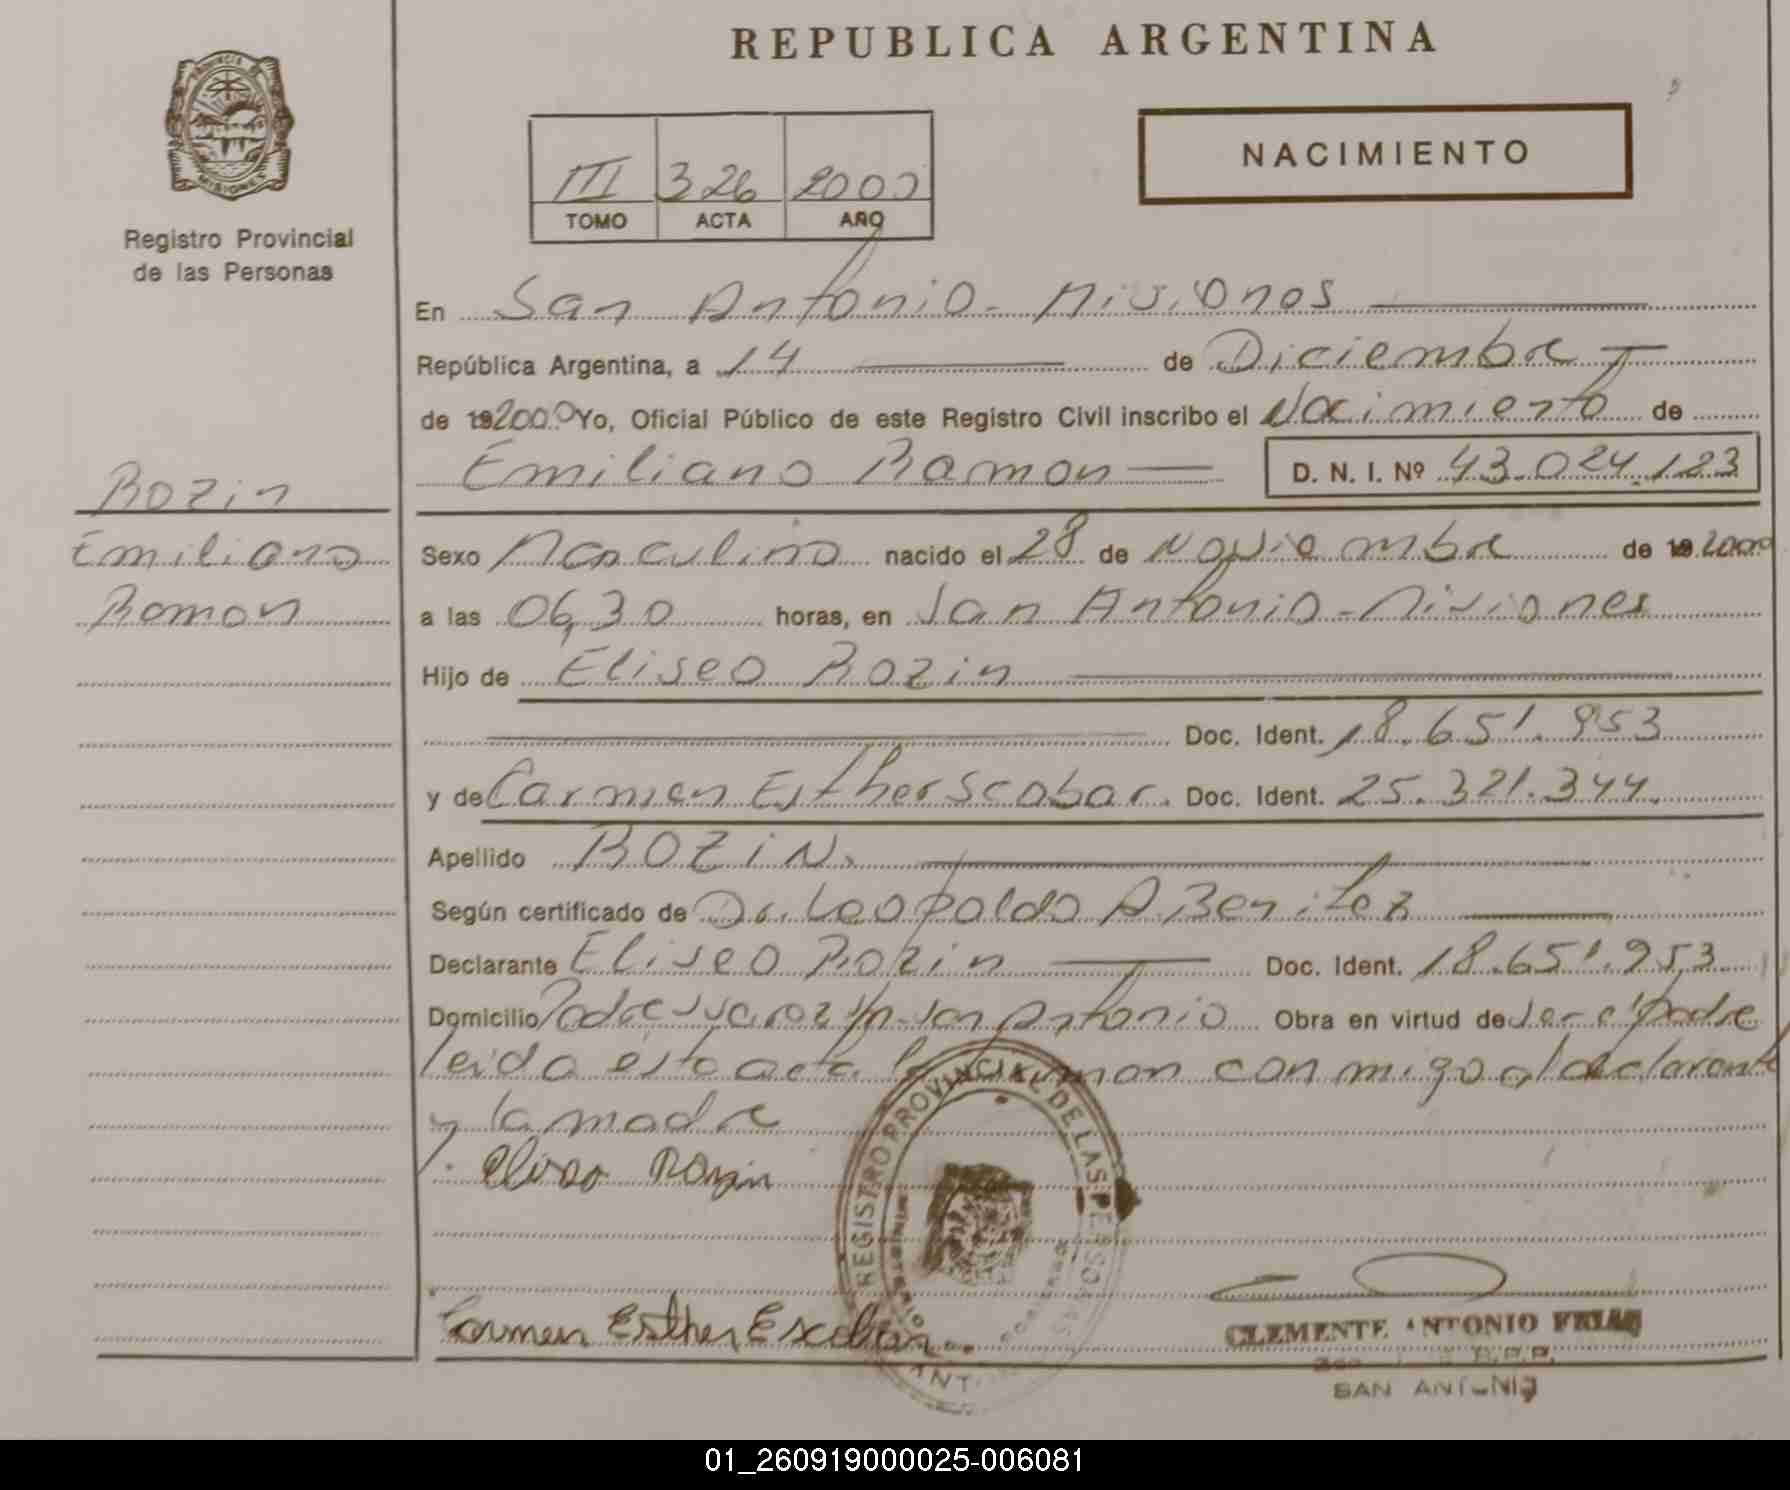 REPUBLICA ARGENTINA
PROVINCIA DE
MISIONES
Registro Provincial
de las Personas
III 326 2000
TOMO ACTA AÑO
NACIMIENTO
En San Antonio - Misiones
República Argentina, a 14 de Diciembre
de 192000 Yo, Oficial Público de este Registro Civil inscribo el Nacimiento de
Emiliano Ramon D. N. I. Nº 43.024.123
Rozin
Emiliano
Ramon
Sexo Masculino nacido el 28 de Noviembre de 19 2000
a las 06,30 horas, en San Antonio - Misiones
Hijo de Eliseo Rozin
Doc. Ident. 18.651.953
y de Carmen Esther Scobar. Doc. Ident. 25.321.344.
Apellido ROZIN.
Según certificado de Dr. Leopoldo A. Benitez
Declarante Eliseo Rozin Doc. Ident. 18.651.953
Domicilio Padre Suarez S/n San Antonio Obra en virtud de ser el padre
leida esta acta la firman con migo el declarante
y la madre
Eliseo Rozin
REGISTRO PROVINCIAL DE LAS PERSONAS
Carmen Esther Escobar
CLEMENTE ANTONIO FRIAS
R.P.P.
SAN ANTONIO
01_260919000025-006081